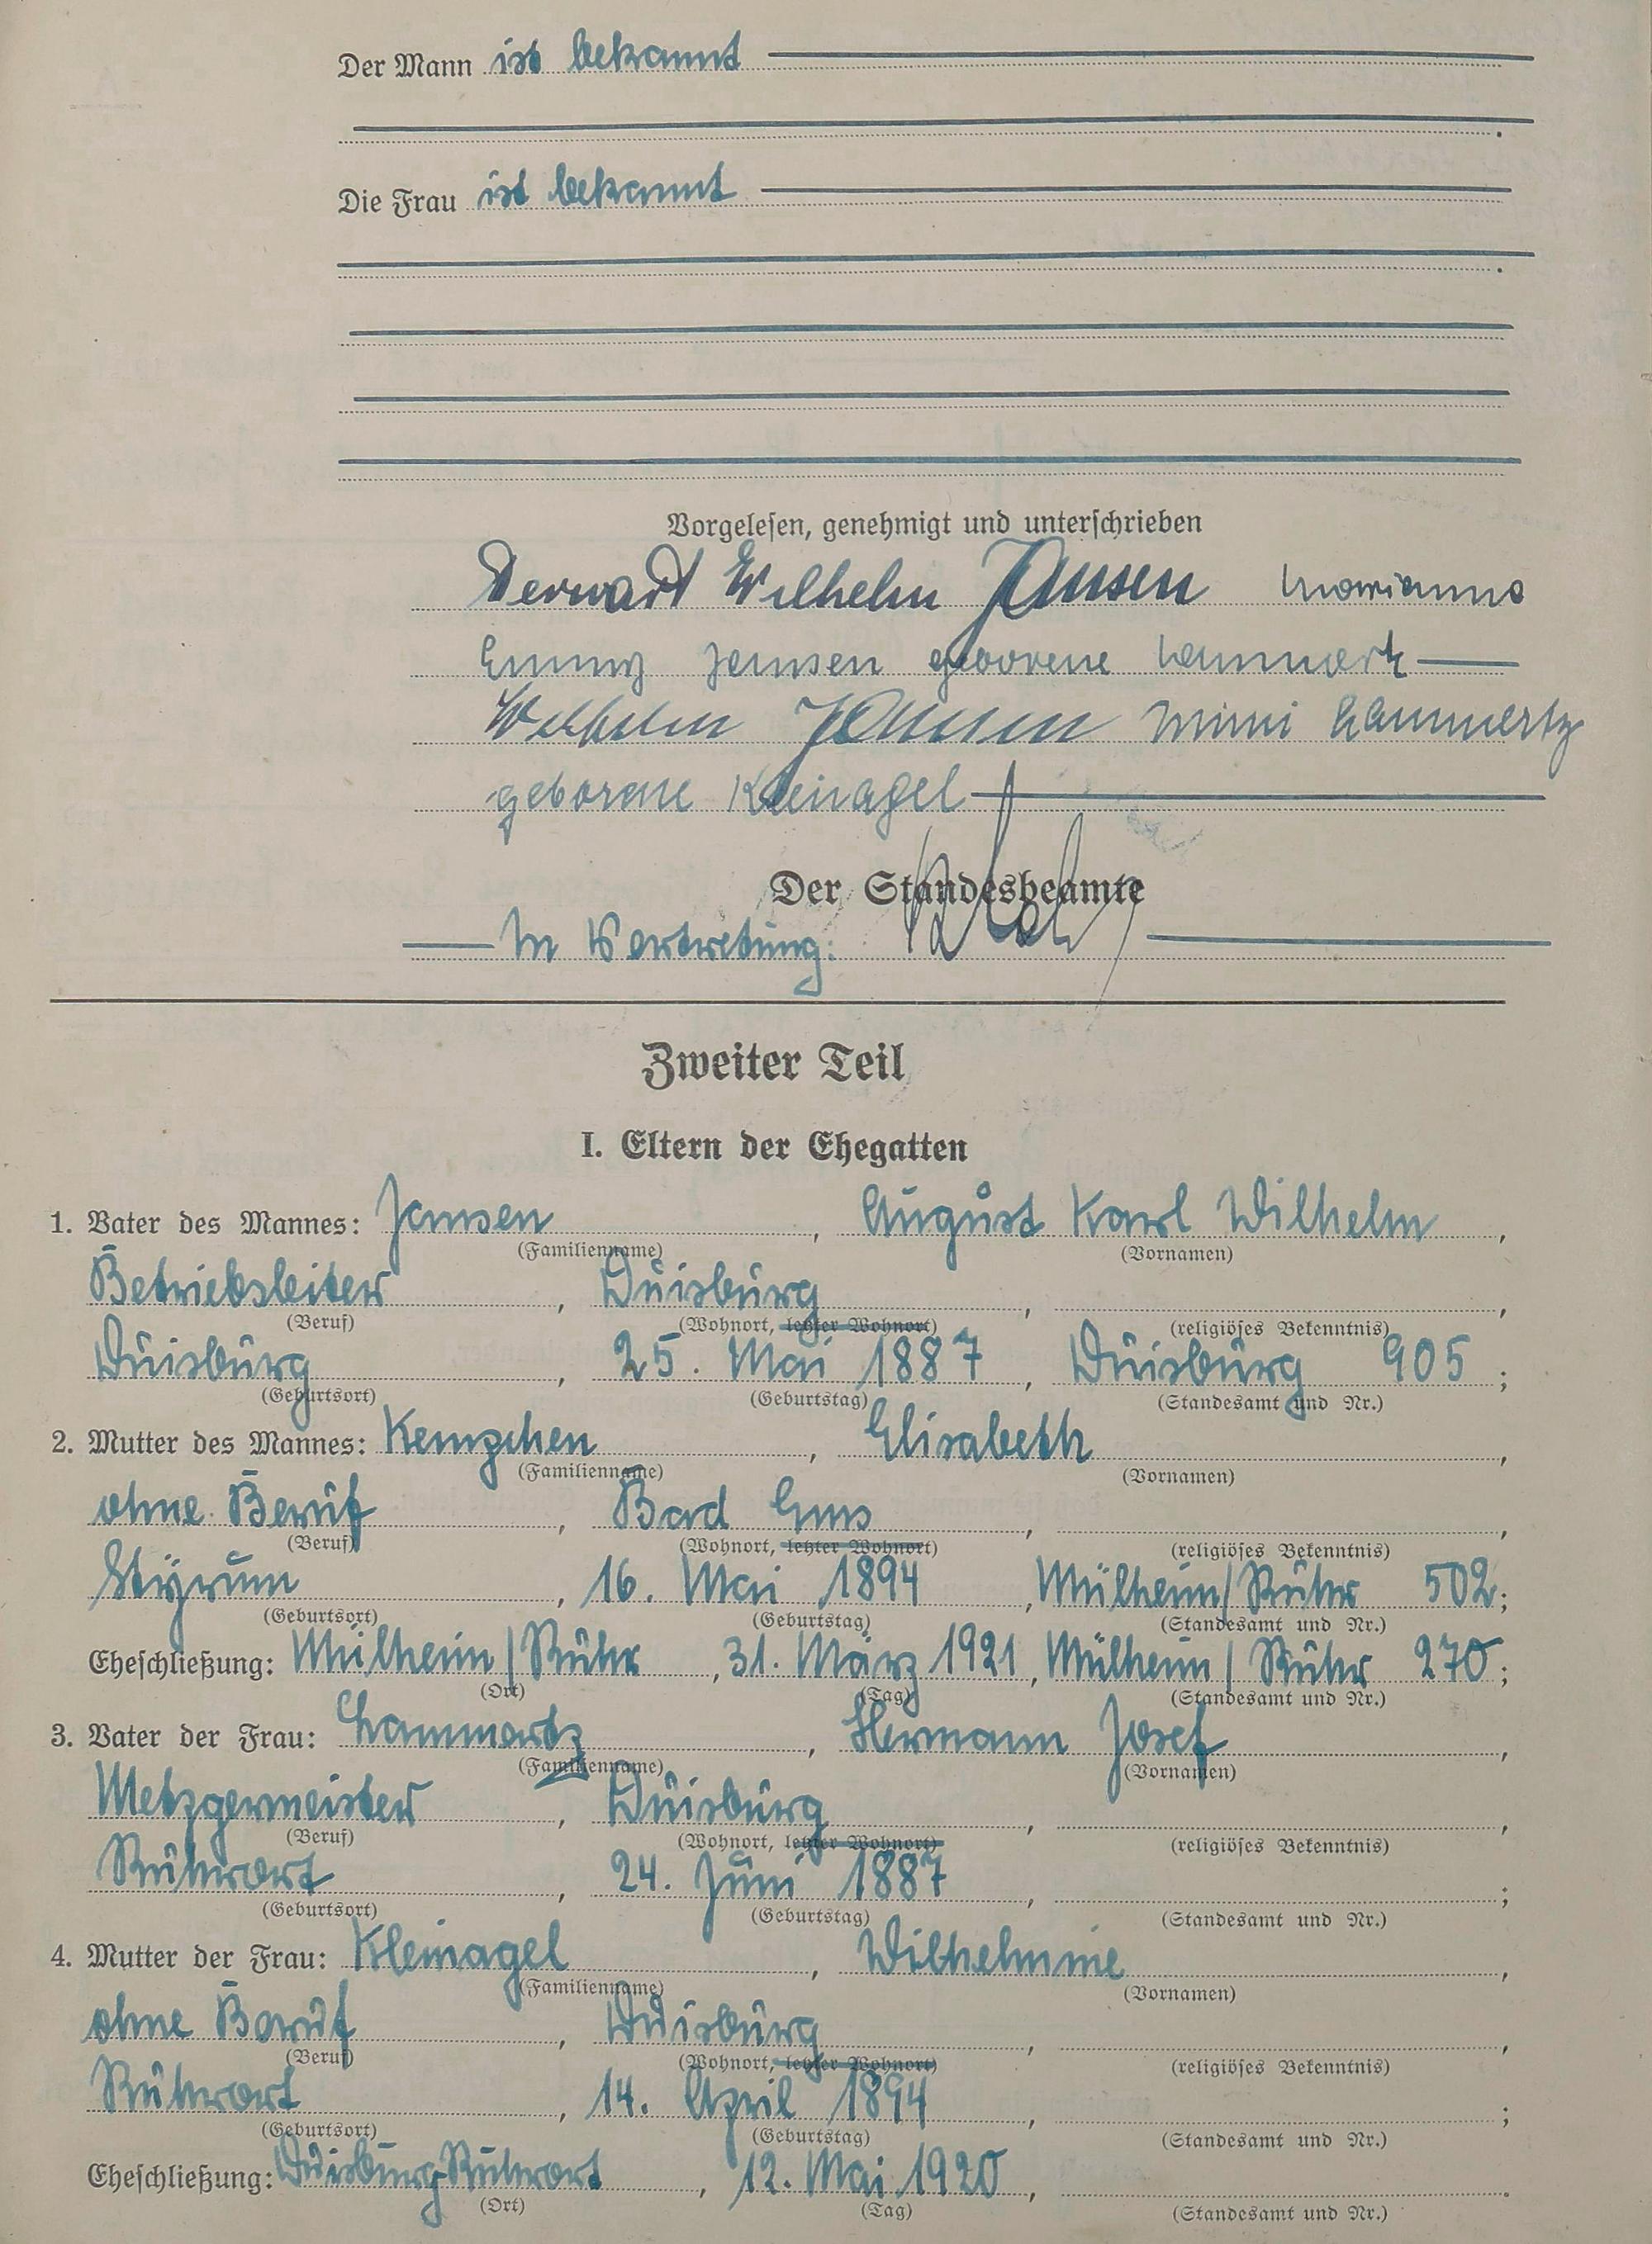 Der Mann ist bekannt
Die Frau ist bekannt
Vorgelesen, genehmigt und unterschrieben
Wilhelm Jansen Marianne
Emmy Jansen geborene Lammertz
Wilhelm Jansen Mimi Lammertz
geborene Kleinagel
Der Standesbeamte
In Vertretung:
Zweiter Teil
I. Eltern der Ehegatten
1. Vater des Mannes: Jansen, August Karl Wilhelm,
(Familienname) (Vornamen)
Betriebsleiter, Duisburg, ,
(Beruf) (Wohnort, letzter Wohnort) (religiöses Bekenntnis)
Duisburg, 25. Mai 1887, Duisburg 905;
(Geburtsort) (Geburtstag) (Standesamt und Nr.)
2. Mutter des Mannes: Kempchen, Elisabeth,
(Familienname) (Vornamen)
ohne Beruf, Bad Ems, ,
(Beruf) (Wohnort, letzter Wohnort) (religiöses Bekenntnis)
Styrum, 16. Mai 1894, Mülheim/Ruhr 502;
(Geburtsort) (Geburtstag) (Standesamt und Nr.)
Eheschließung: Mülheim/Ruhr, 31. März 1921, Mülheim/Ruhr 270;
(Ort) (Tag) (Standesamt und Nr.)
3. Vater der Frau: Lammertz, Hermann Josef,
(Familienname) (Vornamen)
Metzgermeister, Duisburg, ,
(Beruf) (Wohnort, letzter Wohnort) (religiöses Bekenntnis)
Ruhrort, 24. Juni 1887, ;
(Geburtsort) (Geburtstag) (Standesamt und Nr.)
4. Mutter der Frau: Kleinagel, Wilhelmine,
(Familienname) (Vornamen)
ohne Beruf, Duisburg, ,
(Beruf) (Wohnort, letzter Wohnort) (religiöses Bekenntnis)
Ruhrort, 14. April 1894, ;
(Geburtsort) (Geburtstag) (Standesamt und Nr.)
Eheschließung: Duisburg Ruhrort, 12. Mai 1920, .
(Ort) (Tag) (Standesamt und Nr.)